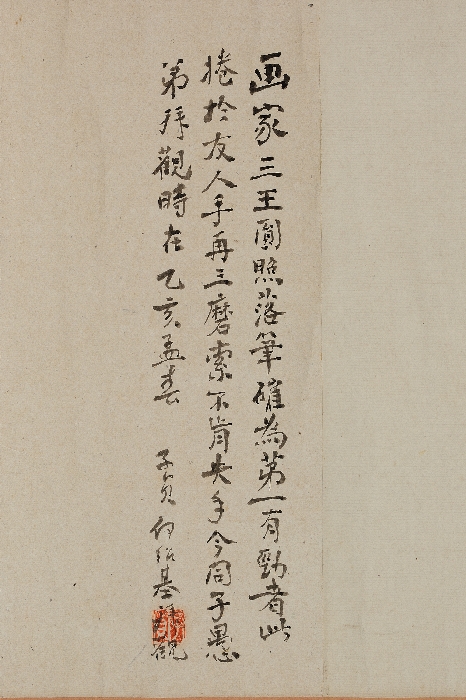 画家三王圓照落筆確為第一有勁者此
捲於友人手再三磨索不肯失手今同子愚
弟拜觀時在乙亥孟春
子貞何紹基拜觀